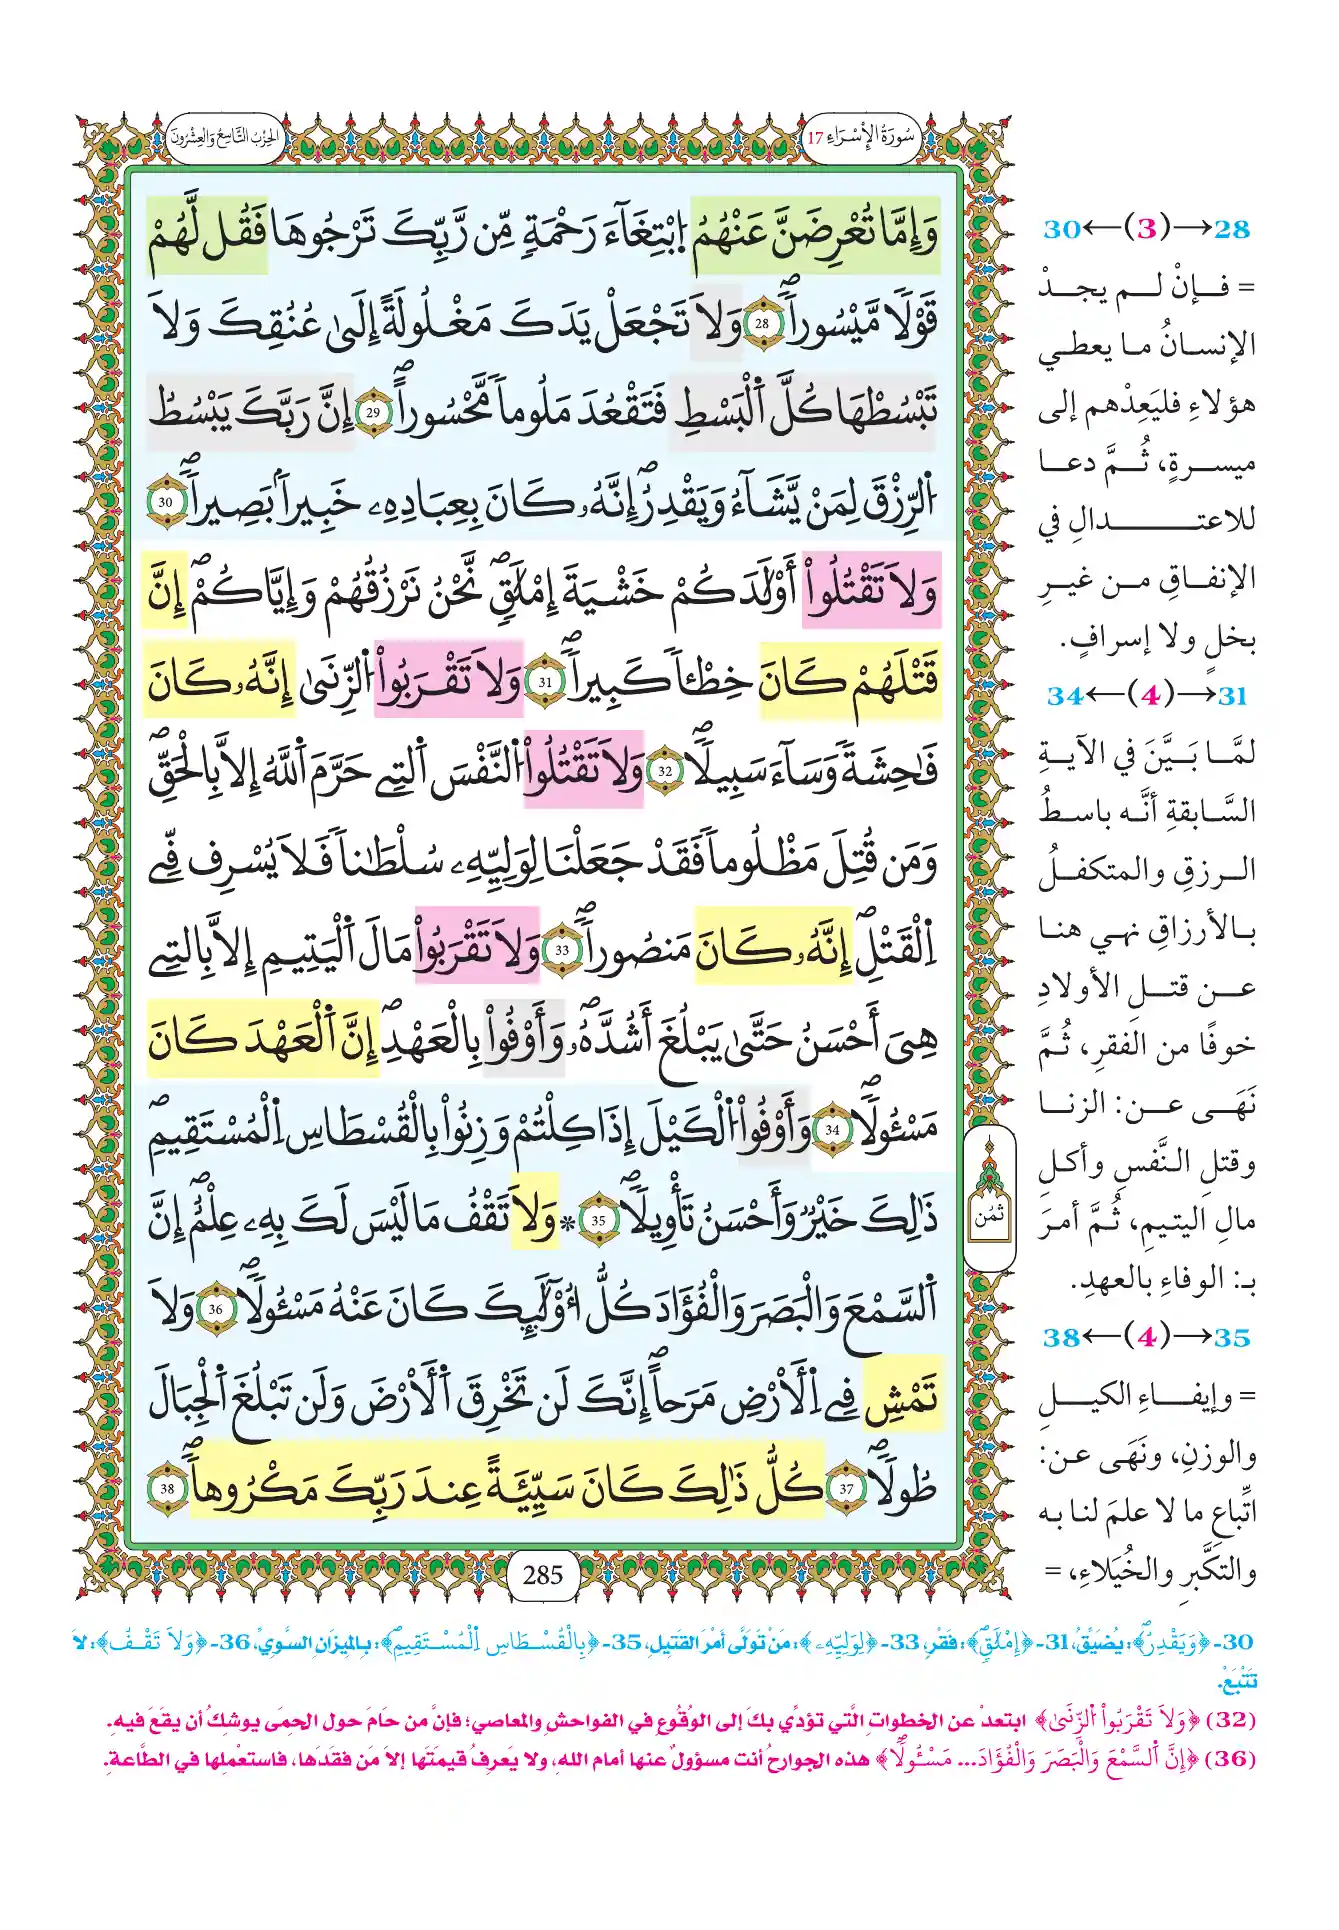 سُورَةُ الإِسْرَاءِ 17
الحِزْبُ التَّاسِعُ وَالعِشْرُونَ
وَإِمَّا تُعْرِضَنَّ عَنْهُمُ اِبْتِغَآءَ رَحْمَةٖ مِّن رَّبِّكَ تَرْجُوهَا فَقُل لَّهُمْ
قَوْلاٗ مَّيْسُوراٗۖ 28 وَلَا تَجْعَلْ يَدَكَ مَغْلُولَةً إِلَىٰ عُنُقِكَ وَلَا
تَبْسُطْهَا كُلَّ اَ۬لْبَسْطِ فَتَقْعُدَ مَلُوماٗ مَّحْسُوراًۖ 29 إِنَّ رَبَّكَ يَبْسُطُ
اُ۬لرِّزْقَ لِمَنْ يَّشَآءُ وَيَقْدِرُۖ إِنَّهُۥ كَانَ بِعِبَادِهِۦ خَبِيراَۢ بَصِيراٗۖ 30
وَلَا تَقْتُلُواْ أَوْلَٰدَكُمْ خَشْيَةَ إِمْلَٰقٖۖ نَّحْنُ نَرْزُقُهُمْ وَإِيَّاكُمُۥٓۖ إِنَّ
قَتْلَهُمْ كَانَ خِطْـٔاٗ كَبِيراٗۖ 31 وَلَا تَقْرَبُواْ اُ۬لزِّنَىٰٓ إِنَّهُۥ كَانَ
فَٰحِشَةٗ وَسَآءَ سَبِيلاٗۖ 32 وَلَا تَقْتُلُواْ اُ۬لنَّفْسَ اَ۬لتِے حَرَّمَ اَ۬للَّهُ إِلَّا بِالْحَقِّۖ
وَمَن قُتِلَ مَظْلُوماٗ فَقَدْ جَعَلْنَا لِوَلِيِّهِۦ سُلْطَٰناٗ فَلَا يُسْرِف فِّے
اِ۬لْقَتْلِۖ إِنَّهُۥ كَانَ مَنصُوراٗۖ 33 وَلَا تَقْرَبُواْ مَالَ اَ۬لْيَتِيمِ إِلَّا بِالتِے
هِيَ أَحْسَنُ حَتَّىٰ يَبْلُغَ أَشُدَّهُۥۖ وَأَوْفُواْ بِالْعَهْدِۖ إِنَّ اَ۬لْعَهْدَ كَانَ
مَسْـُٔولاٗۖ 34 وَأَوْفُواْ اُ۬لْكَيْلَ إِذَا كِلْتُمْ وَزِنُواْ بِالْقُسْطَاسِ اِ۬لْمُسْتَقِيمِۖ
ذَٰلِكَ خَيْرٞ وَأَحْسَنُ تَأْوِيلاٗۖ 35 * وَلَا تَقْفُ مَا لَيْسَ لَكَ بِهِۦ عِلْمٌۖ إِنَّ
اَ۬لسَّمْعَ وَالْبَصَرَ وَالْفُؤَادَ كُلُّ أُوْلَٰٓئِكَ كَانَ عَنْهُ مَسْـُٔولاٗۖ 36 وَلَا
تَمْشِ فِے اِ۬لْأَرْضِ مَرَحاًۖ إِنَّكَ لَن تَخْرِقَ اَ۬لْأَرْضَ وَلَن تَبْلُغَ اَ۬لْجِبَالَ
طُولاٗۖ 37 كُلُّ ذَٰلِكَ كَانَ سَيِّئَةً عِندَ رَبِّكَ مَكْرُوهاٗۖ 38
ثمُن
285
28→(3)←30
= فإنْ لم يجدْ
الإنسانُ ما يعطي
هؤلاءِ فليَعِدْهم إلى
ميسرةٍ، ثُمَّ دعا
للاعتدالِ في
الإنفاقِ من غيرِ
بخلٍ ولا إسرافٍ.
31→(4)←34
لمَّا بَيَّنَ في الآيةِ
السَّابقةِ أنَّه باسطُ
الرزقِ والمتكفلُ
بالأرزاقِ نهي هنا
عن قتلِ الأولادِ
خوفًا من الفقرِ، ثُمَّ
نَهَى عن: الزنا
وقتلِ النَّفسِ وأكلِ
مالِ اليتيمِ، ثُمَّ أمرَ
بـ: الوفاءِ بالعهدِ.
35→(4)←38
= وإيفاءِ الكيلِ
والوزنِ، ونَهَى عن:
اتِّباعِ ما لا علمَ لنا به
والتكَّبرِ والخُيَلاءِ، =
30- ﴿وَيَقْدِرُۖ﴾: يُضَيِّقُ، 31- ﴿إِمْلَٰقٖۖ﴾: فَقْرٍ، 33- ﴿لِوَلِيِّهِۦ﴾: مَنْ تَوَلَّى أَمْرَ القَتِيلِ، 35- ﴿بِالْقُسْطَاسِ اِ۬لْمُسْتَقِيمِۖ﴾: بِالمِيزَانِ السَّوِيِّ، 36- ﴿وَلَا تَقْفُ﴾: لا
تَتْبَعْ.
(32) ﴿وَلَا تَقْرَبُواْ اُ۬لزِّنَىٰٓ﴾ ابتعدْ عن الخطواتِ الَّتي تؤدِّي بكَ إلى الوُقُوعِ في الفواحشِ والمعاصي؛ فإنَّ من حَامَ حول الحِمَى يوشِكُ أن يقَعَ فيهِ.
(36) ﴿إِنَّ اَ۬لسَّمْعَ وَالْبَصَرَ وَالْفُؤَادَ... مَسْـُٔولاٗۖ﴾ هذه الجوارحُ أنت مسؤولٌ عنها أمام اللهِ، ولا يَعرِفُ قيمتَها إلا مَن فقدَها، فاستعْملِها في الطَّاعةِ.